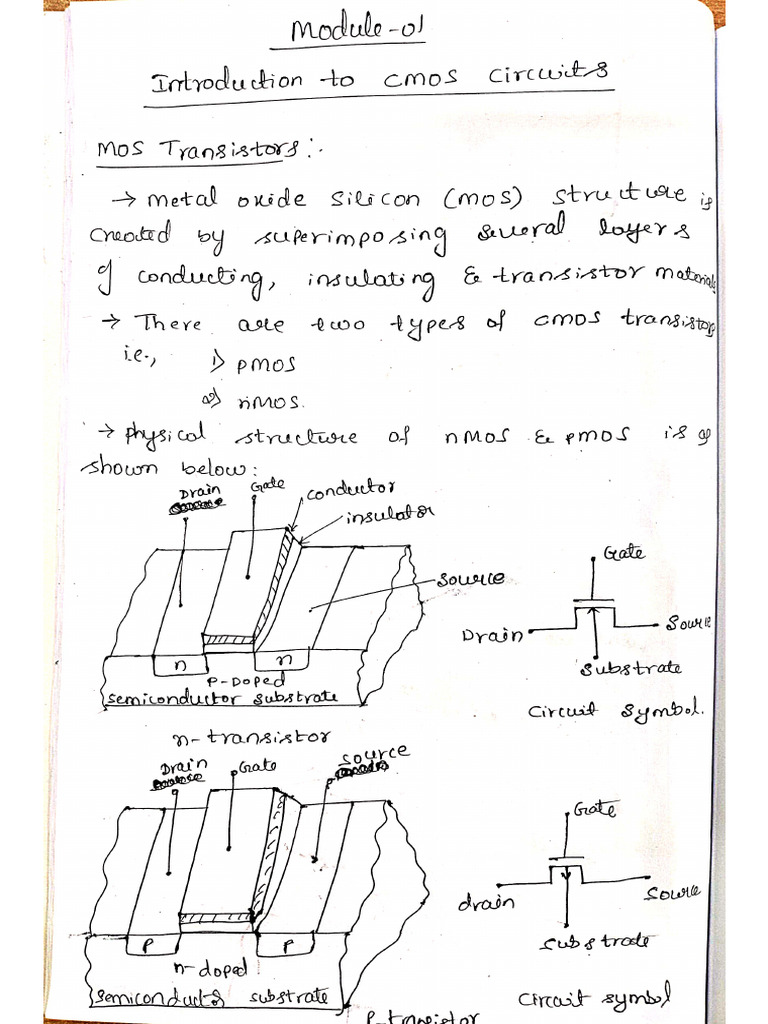 Module-01
Introduction to CMOS Circuits
MOS Transistors:-
→ Metal oxide Silicon (MOS) structure is
created by superimposing several layers
of conducting, insulating & transistor materials
→ There are two types of CMOS transistors
i.e., 1) PMOS
2) nMOS.
→ Physical structure of nMOS & PMOS is as
shown below:
Drain Gate conductor
insulator
source
n n
P-Doped
semiconductor substrate
Gate
Drain Source
Substrate
Circuit Symbol.
n-transistor
Drain Gate Source
P P
n-doped
semiconductor substrate
Gate
drain source
substrate
Circuit symbol
P-transistor